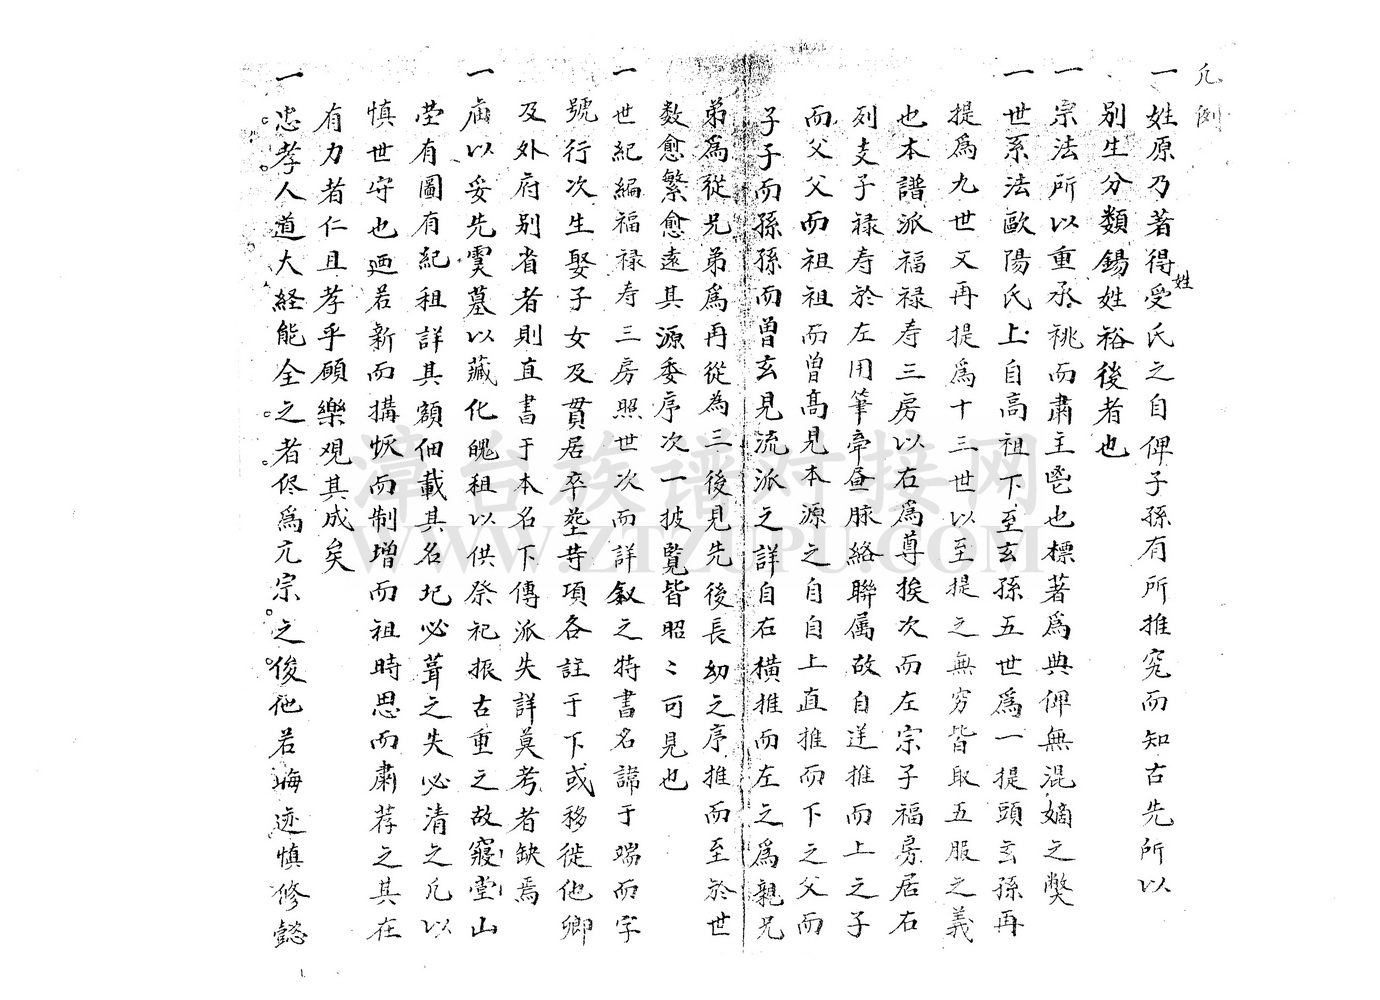 凡例
一姓原乃著得受氏之自俾子孫有所推究而知古先所以
姓
别生分類錫姓裕後者也
一宗法所以重承祧而肅主鬯也標著爲典俾無混嫡之獘
一世系法歐陽氏上自高祖下至玄孫五世爲一提頭玄孫再
提爲九世又再提爲十三世以至提之無穷皆取五服之義
也本譜派福禄寿三房以右爲尊挨次而左宗子福房居右
列支子禄寿於左用筆牽昼脉絡聯属故自逆推而上之子
而父父而祖祖而曽髙見本源之自自上直推而下之父而
子子而孫孫而曽玄見流派之詳自右横推而左之爲親兄
弟爲從兄弟爲再從為三後見先後長幼之序推而至於世
数愈繁愈遠其源委序次一披覧皆昭〻可見也
一世紀編福禄寿三房照世次而詳叙之特書名諱于端而字
號行次生娶子女及貫居卒塟䓁項各註于下或移徙他鄉
及外府别省者則直書于本名下傳派失詳莫考者缺焉
一庙以妥先霛墓以藏化魄租以供祭祀振古重之故寢堂山
塋有圖有紀租詳其額佃載其名圮必葺之失必清之凡以
慎世守也廼若新而搆恢而制增而祖時思而肅荐之其在
有力者仁且孝乎願樂观其成矣
一忠孝人道大経能全之者俻爲亢宗之俊他若晦迹慎修懿
漳台族谱对接网
WWW.ZTZUPU.COM